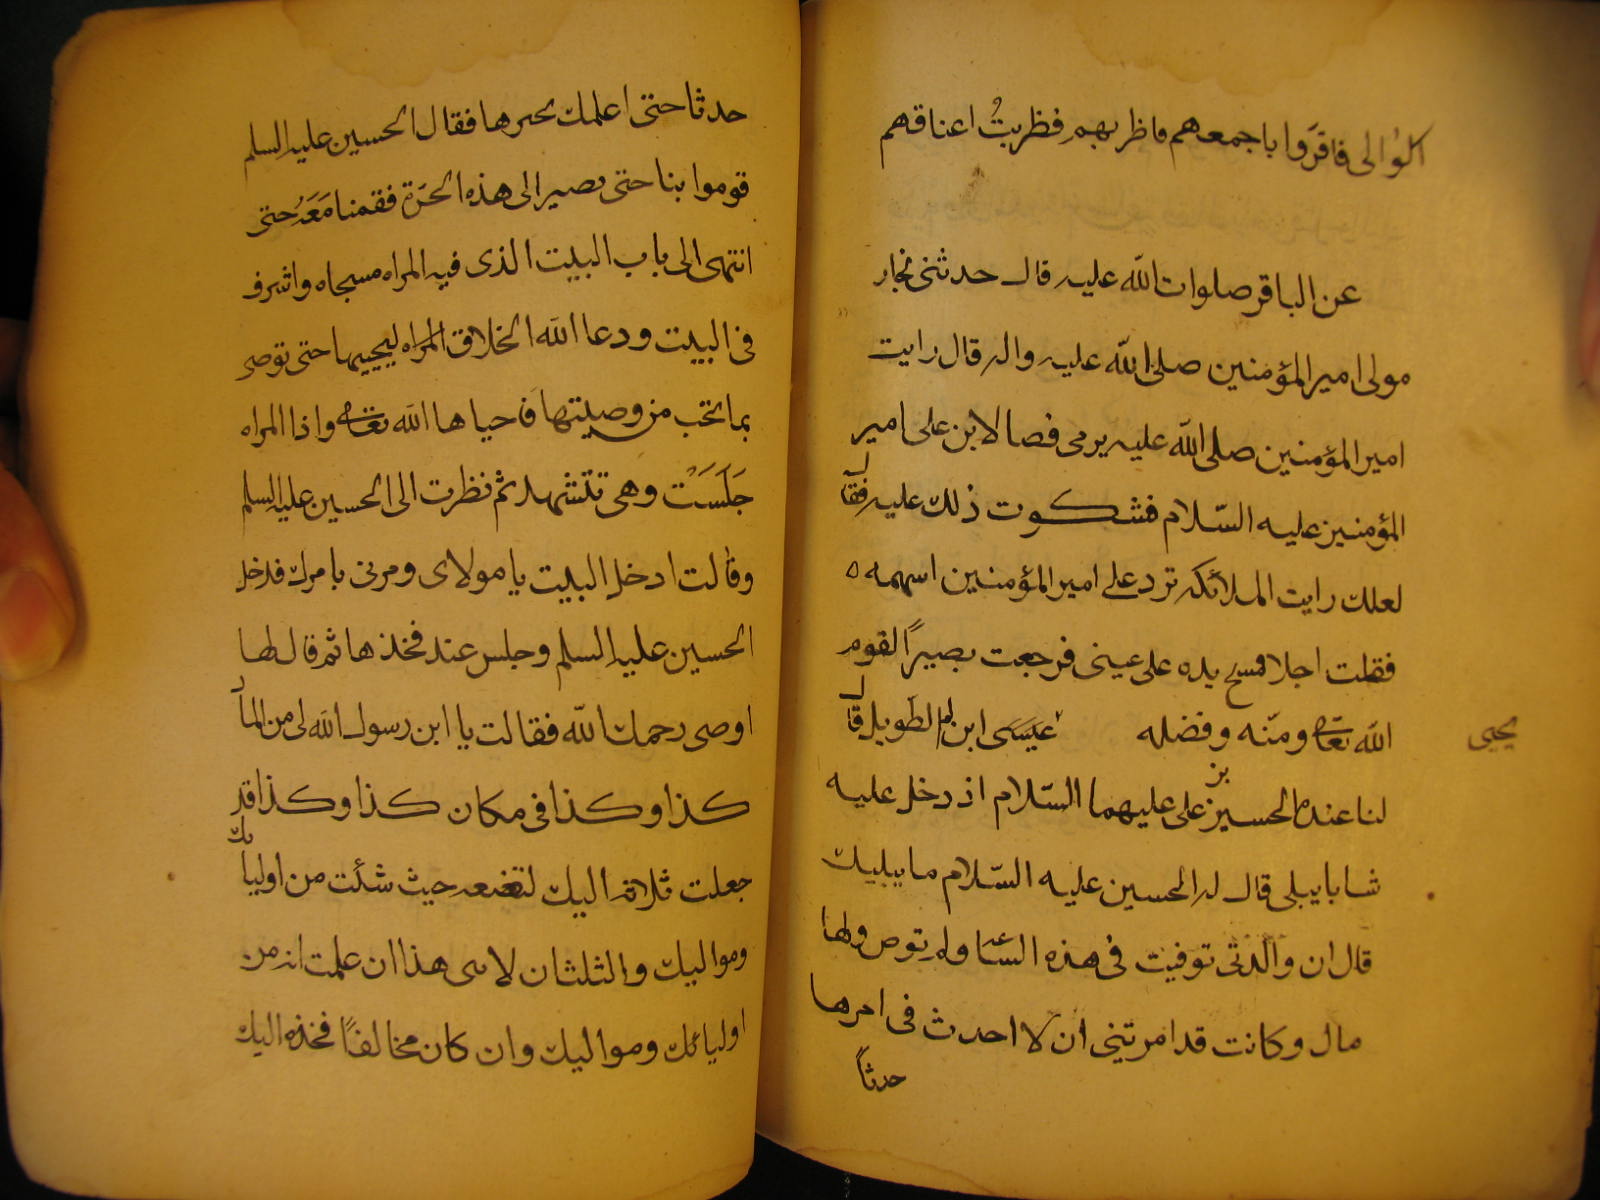 اكلوا الى فاقروا باجمعهم فاظربهم فظربتُ اعناقهم
عن الباقر صلوات الله عليه قال حدثنى نجار
مولى امير المؤمنين صلى الله عليه واله قال رايت
امير المؤمنين صلى الله عليه يرمى فصالا بن على امير
المؤمنين عليه السّلام فشكوت ذلك عليه فقال
لعلك رايت الملائكة ترد على امير المؤمنين اسهمه ه
فقلت اجل فمسح يده على عينى فرجعت بصيرًا لقوم
الله تعالى ومنّه وفضله عيسَى ابن ام الطّويل قال
يحيى
لنا عند الحسين بن على عليهما السّلام اذ دخل عليه
شابا يبلى قال له الحسين عليه السّلام ما يبليك
قال ان والدتى توفيت فى هذه السّاعة ولم توص ولها
مال وكانت قد امرتينى ان لا احدث فى امرها
حدثاً
حدثا حتى اعلمك بخبرها فقال الحسين عليه السلم
قوموا بنا حتى نصير الى هذه الحَرّة فقمنا مَعَهُ حتى
انتهى الى باب البيت الذى فيه المراه مسجاه واشرف
فى البيت ودعا الله الخلاق المراه ليحييها حتى توصى
بما تحب من وصيتها فاحياها الله تعالى واذا المراه
جَلَسَت وهى تتشهد ثم نظرت الى الحسين عليه السلم
وقالت ادخل البيت يا مولاى ومرنى بامرك فدخل
الحسين عليه السلم وجلس عند فخذها ثم قال لها
اوصى رحمك الله فقالت يا ابن رسول الله لى من المال
كذا وكذا فى مكان كذا وكذا قد
جعلت ثلاثة اليك لتضعه حيث شئت من اوليائك
ومواليك والثلثان لابنى هذا ان علمت انه من
اوليائك ومواليك وان كان مخالفًا فخذه اليك